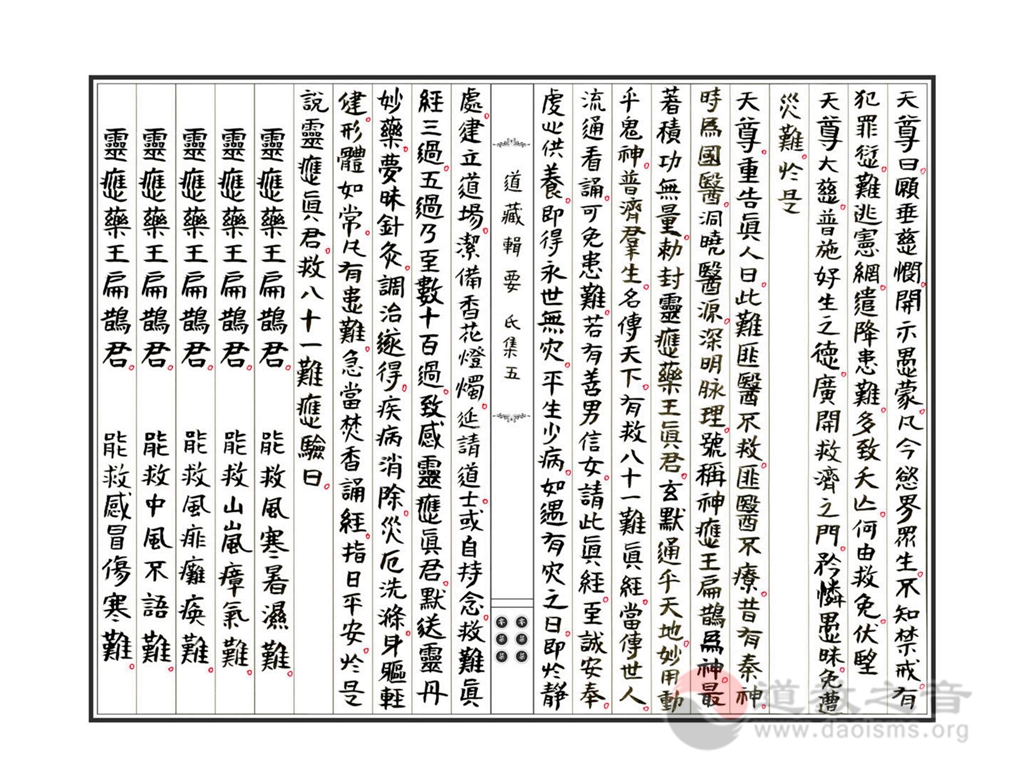 天尊曰願垂慈憫。開示愚蒙。凡今慾界眾生。不知禁戒。有
犯罪愆。難逃憲網。遣降患難。多致夭亾。何由救免。伏朢
天尊大慈。普施好生之德。廣開救濟之門。矜憐愚昧。免遭
災難。於是
天尊。重告眞人曰。此難匪醫不救。匪醫不療。昔有秦神。
時爲國醫。洞曉醫源。深明脉理。號稱神應王扁鵲爲神。最
著積功無量。勅封靈應藥王眞君。玄默通乎天地。妙用動
乎鬼神。普濟羣生。名傳天下。有救八十一難眞經。當傳世人。
流通看誦。可免患難。若有善男信女。請此眞經。至誠安奉。
虔心供養。即得永世無灾。平生少病。如遇有灾之日。即於靜
道藏輯要 氐集五
處。建立道場。潔備香花燈燭。延請道士。或自持念。救難眞
經三過。五過乃至數十百過。致感靈應眞君。默送靈丹
妙藥。夢昧針灸。調治遂得。疾病消除。災厄洗滌。身軀輕
健。形體如常。凡有患難。急當焚香誦經。指日平安。於是
說靈應眞君。救八十一難應驗曰。
靈應藥王扁鵲君。 能救風寒暑濕難。
靈應藥王扁鵲君。 能救山嵐瘴氣難。
靈應藥王扁鵲君。 能救風痱癱瘓難。
靈應藥王扁鵲君。 能救中風不語難。
靈應藥王扁鵲君。 能救感冒傷寒難。
道教之音
www.daoisms.org